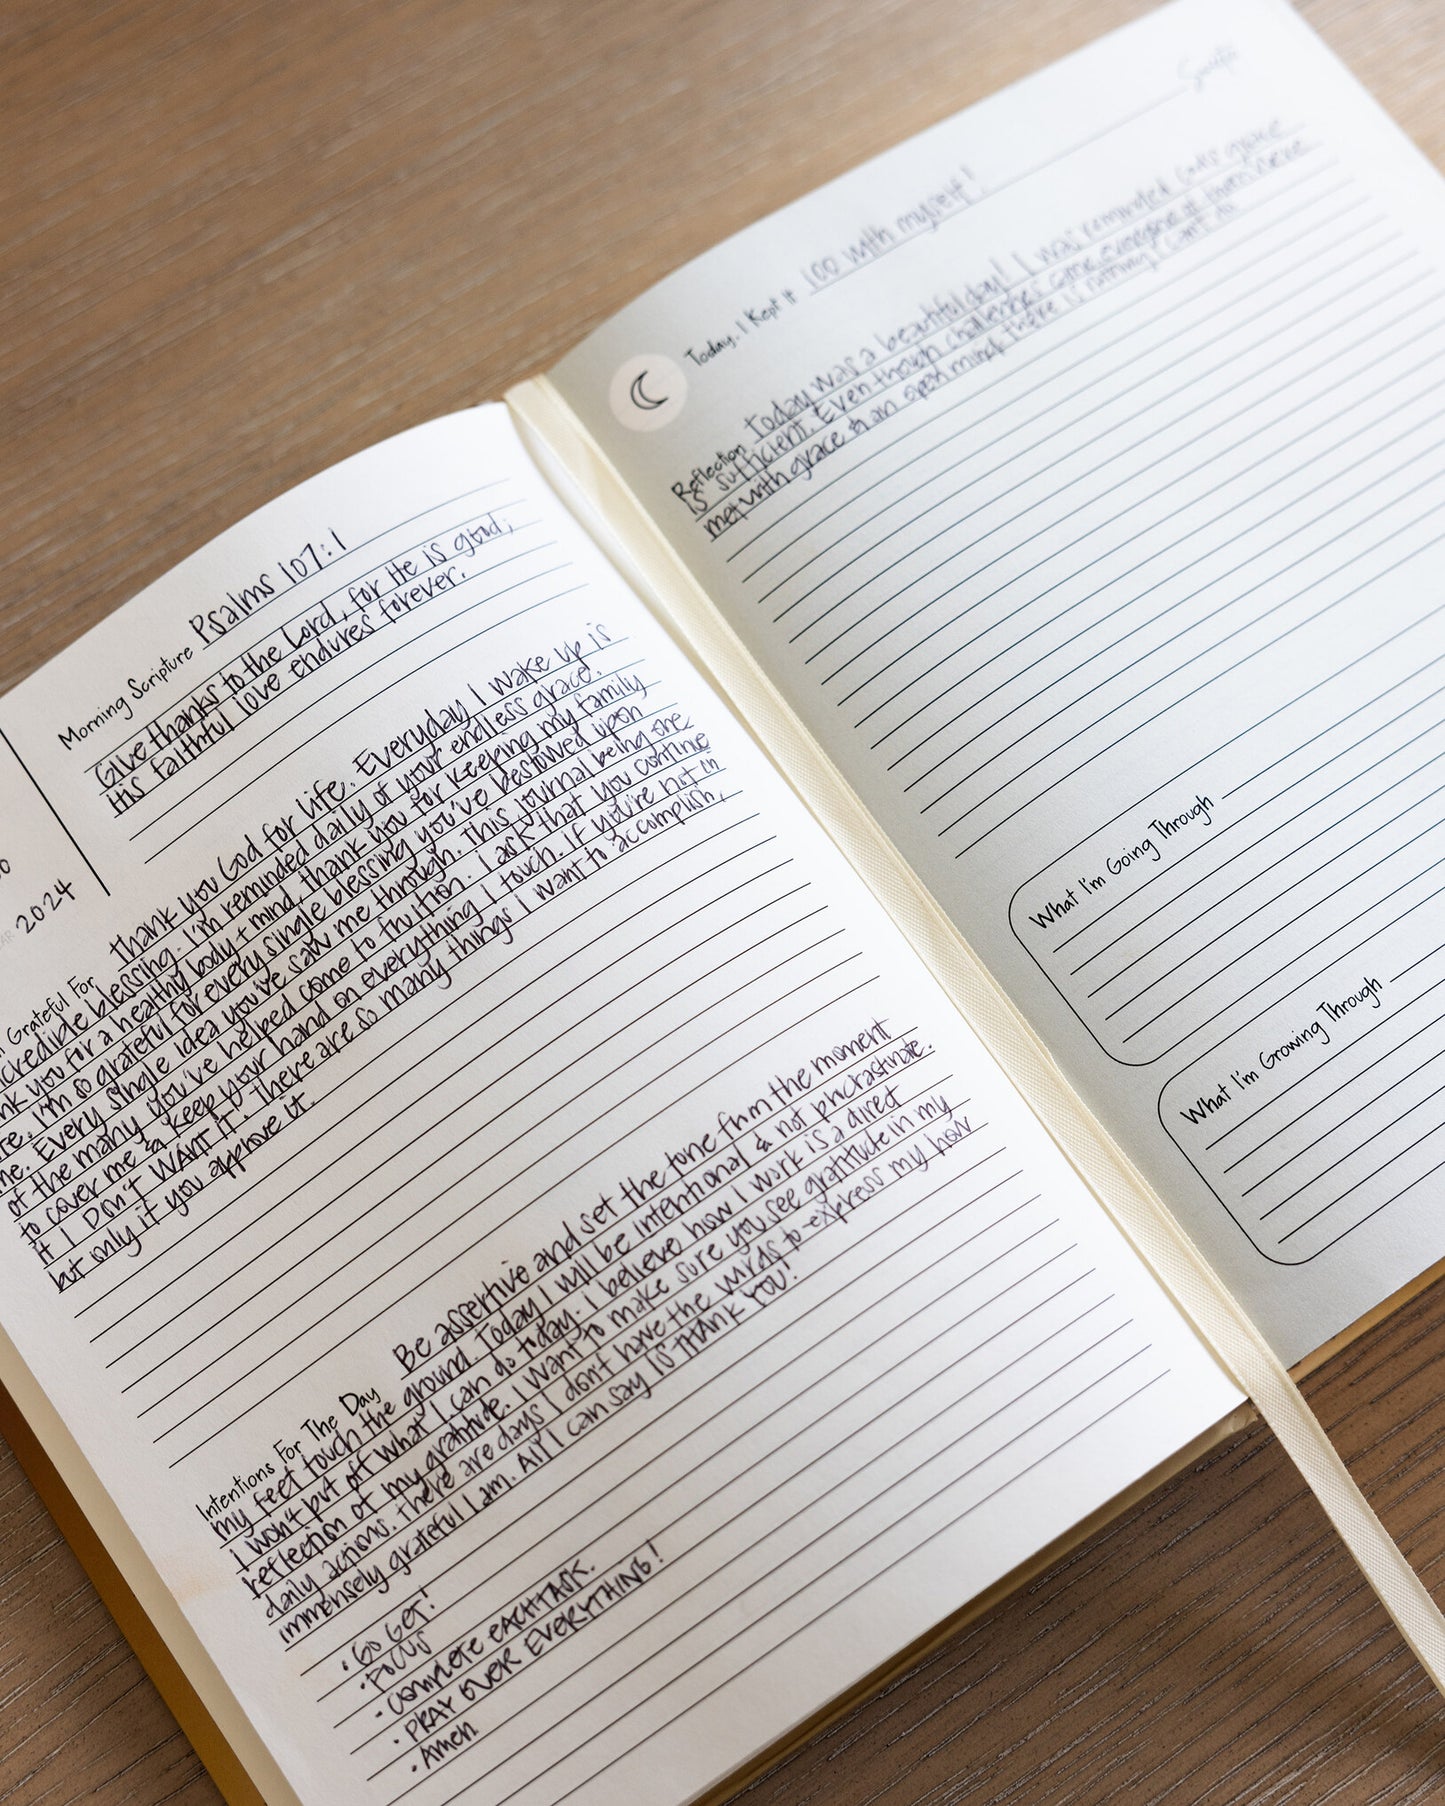 2024
Morning Scripture Psalms 107:1
Give thanks to the Lord, for He is good;
His faithful love endures forever.
Grateful For thank you God for life. Everyday I wake up is
incredible blessing. I'm reminded daily of your endless grace.
you for a healthy body + mind, thank you for keeping my family
I'm so grateful for every single blessing you've bestowed upon
me. Every single idea you've saw me through. This journal being one,
of the many you've helped come to fruition. I ask that you continue
to cover me & keep your hand on everything I touch. If you're not in
it I DON'T WANT IT. There are so many things I want to accomplish,
but only if you approve it.
Intentions For The Day Be assertive and set the tone from the moment
my feet touch the ground. Today I will be intentional & not procrastinate.
I won't put off what I can do today. I believe how I work is a direct
reflection of my gratitude. I want to make sure you see gratitude in my
daily actions. There are days I don't have the words to express my how
immensely grateful I am. All I can say IS THANK YOU!
• GO GET!
• FOCUS
• COMPLETE EACH TASK.
• PRAY OVER EVERYTHING!
• Amen
Today, I Kept It 100 with myself!
Reflection Today was a beautiful day! I was reminded God's grace
is sufficient. Even though challenges came, everyone of them were
met with grace & an open mind. There is nothing I can't do
What I'm Going Through
What I'm Growing Through